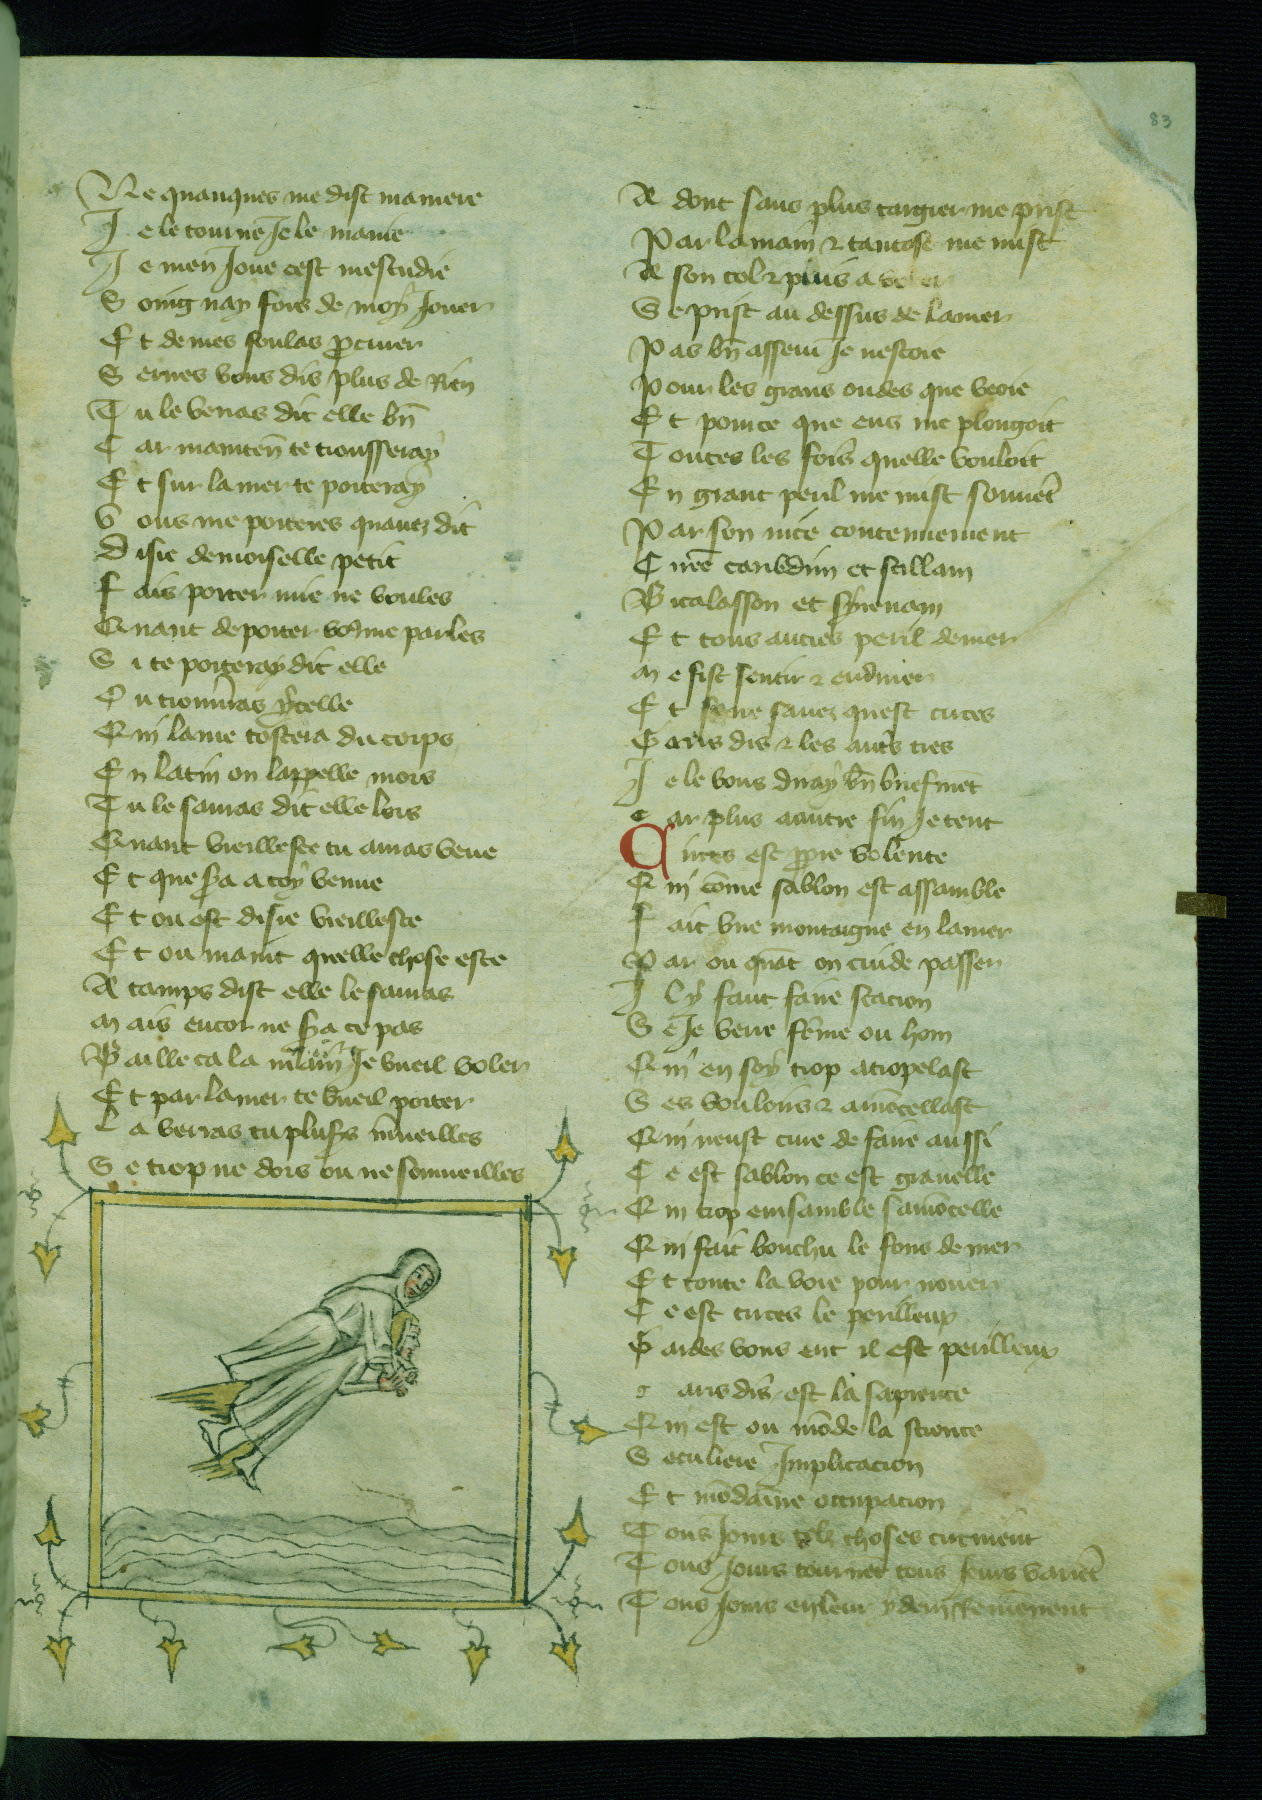 83
Ne quanques me dist ma mere
Je le tourne Je le manie
Je men Joue cest mestudie
Soing nay fors de moy Jouer
Et de mes soulas ꝓcurer
Se rnes vous dis plus de Rien
Tu le venras dit elle bn̄
Car mainten̄ te trousseray
Et sur la mer te porteray
Vous me porteres quantez dit
Disie demoiselle petit
Fais porter mie ne voules
Quant de porter vo9 me parles
Si te porteray dit elle
Tu trouu̾as ycelle
Qui lame tostera du corps
En latin on lappelle mors
Tu le sauras dit elle lors
Quant vieillesce tu auras veue
Et que sa a toy venue
Et ou est disie vieillesce
Et ou maint quelle chose este
A tamps dist elle le sauras
Mais encor ne sa ce pas
Baille ca la main Je vueil voler
Et par la mer te vueil porter
La verras tu plusꝰs mueilles
Se trop ne dors ou ne someilles
A dont sans plus targier me prist
Par la main ⁊ tantost me mist
A son col ⁊ puis a voler
Se prist au dessus de la mer
Pas bn̄ asseur Je nestoie
Pour les grans ondes que veoie
Et pour ce que ens me plongoit
Toutes les fois quelle vouloit
En grant peril me mist souuēt
Par son nice contenement
Cirtē caribdim et scillam
Bitalasson et syrenam
Et tous autres peril de mer
Me fist sentir ⁊ endurer
Et se ne sauez quest cirtes
Caris dis ⁊ les autˢ tres
Je le vous diray bn̄ briefmēt
Car plus aautre fin Je tent
Cirtes est ꝓpre volente
Qui cōme sablon est assamble
Fait vne montaigne en la mer
Par ou quāt on cuide passer
Il y faut faire stacion
Se Je veue fēme ou hom
Qui en soy trop atropelast
Ses vouloirs ⁊ amōcellast
Qui neust cure de faire aussi
Ce est sablon ce est grauelle
Qui trop emsamble samōcelle
Qui fait bouchu le fons de mer
Et toute la voie pour nouer
Ce est cirtes le perilleux
Gardes vous ent il est perilleux
Caris dis est la sapience
Qui est ou mōde la science
Seculiere Implicacion
Et mōdaine occupacion
Tous Jours telz choses tirnient
Tous Jours tournēt tous Jours variēt